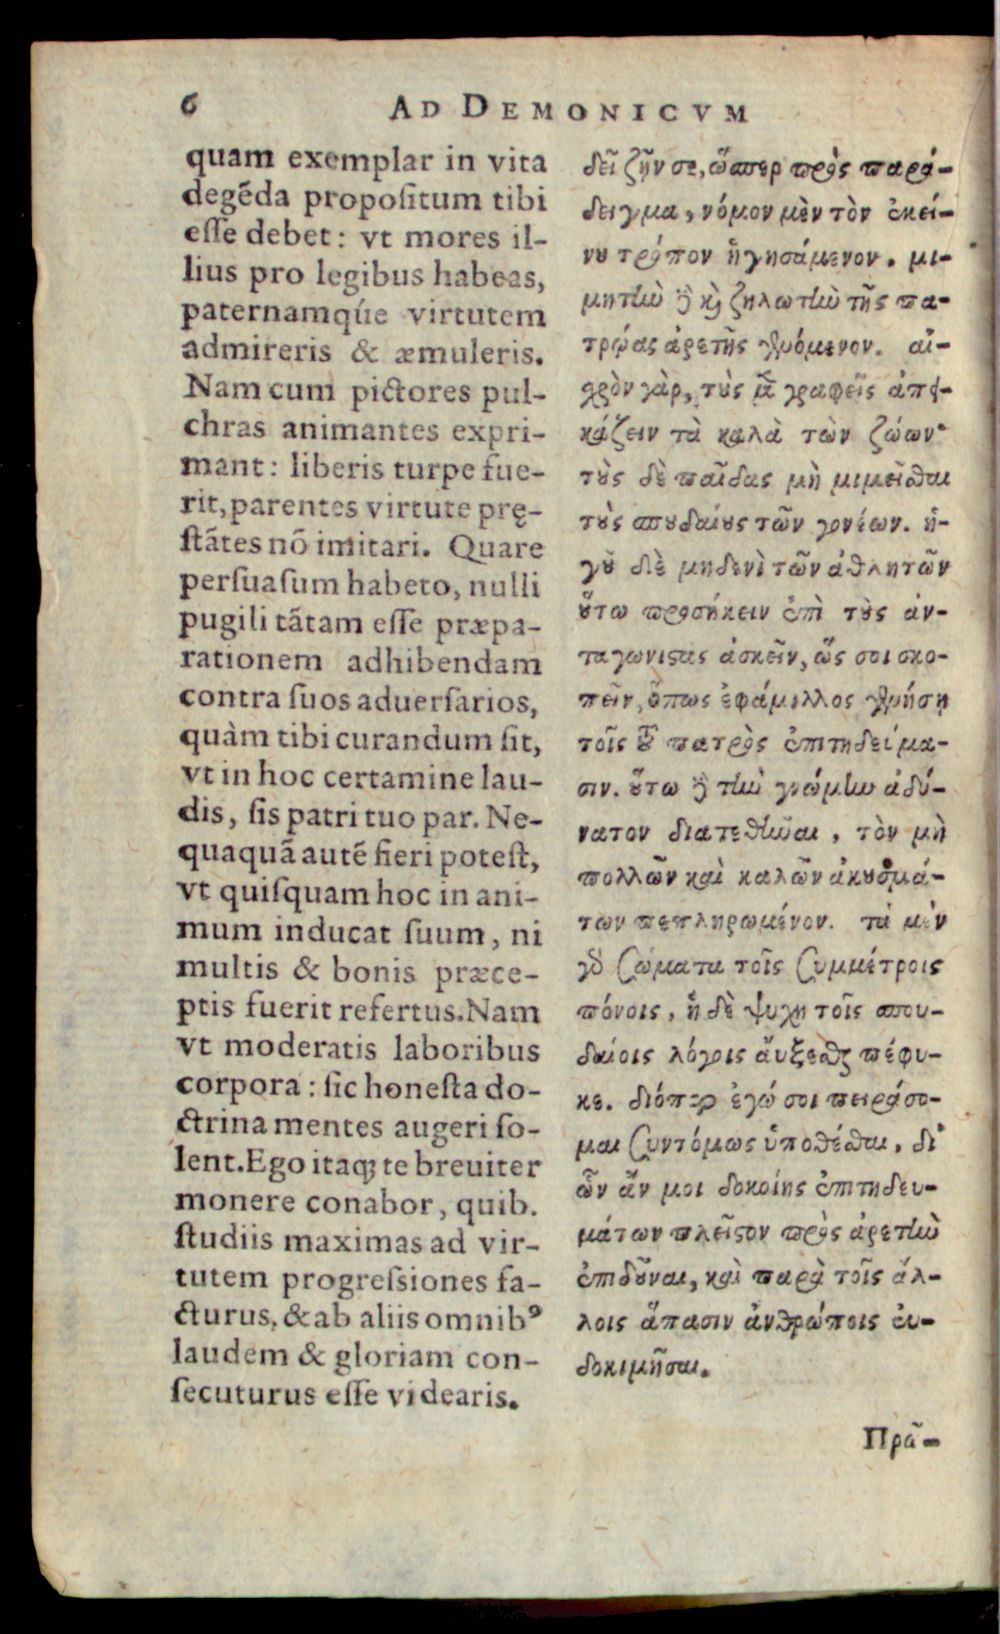 6 AD DEMONICVM
quam exemplar in vita
degēda propoſitum tibi
eſſe debet: vt mores il-
lius pro legibus habeas,
paternamq́ue virtutem
admireris & æmuleris.
Nam cum pictores pul-
chras animantes expri-
mant: liberis turpe fue-
rit, parentes virtute prę-
ſtātes nō imitari. Quare
perſuaſum habeto, nulli
pugili tātam eſſe præpa-
rationem adhibendam
contra ſuos aduerſarios,
quàm tibi curandum ſit,
vt in hoc certamine lau-
dis, ſis patri tuo par. Ne-
quaquā autē fieri poteſt,
vt quiſquam hoc in ani-
mum inducat ſuum, ni
multis & bonis præce-
ptis fuerit refertus. Nam
vt moderatis laboribus
corpora: ſic honeſta do-
ctrina mentes augeri ſo-
lent. Ego itaq; te breuiter
monere conabor, quib.
ſtudiis maximas ad vir-
tutem progreſsiones fa-
cturus, & ab aliis omnibꝰ
laudem & gloriam con-
ſecuturus eſſe videaris.
δεῖ ζῆν σε, ὥσπερ πρὸς παρά-
δειγμα, νόμον μὲν τὸν ἐκεί-
νου τρόπον ἡγησάμενον. μι-
μητὴν δὲ καὶ ζηλωτὴν τῆς πα-
τρῴας ἀρετῆς γενόμενον. αἰ-
σχρὸν γὰρ, τοὺς μὲν γραφεῖς ἀπει-
κάζειν τὰ καλὰ τῶν ζώων·
τοὺς δὲ παῖδας μὴ μιμεῖσθαι
τοὺς σπουδαίους τῶν γονέων. ἡ-
γοῦ δὲ μηδενὶ τῶν ἀθλητῶν
οὕτω προσήκειν ἐπὶ τοὺς ἀν-
ταγωνιστὰς ἀσκεῖν, ὥς σοι σκο-
πεῖν, ὅπως ἐφάμιλλος γενήσῃ
τοῖς τοῦ πατρὸς ἐπιτηδεύμα-
σιν. οὕτω δὲ τὴν γνώμην ἀδύ-
νατον διατεθῆναι, τὸν μὴ
πολλῶν καὶ καλῶν ἀκουσμά-
των πεπληρωμένον. τὰ μὲν
γὰρ σώματα τοῖς συμμέτροις
πόνοις, ἡ δὲ ψυχὴ τοῖς σπου-
δαίοις λόγοις αὔξεσθαι πέφυ-
κε. διόπερ ἐγώ σοι πειράσο-
μαι συντόμως ὑποθέσθαι, δι'
ὧν ἄν μοι δοκοίης ἐπιτηδευ-
μάτων πλεῖστον πρὸς ἀρετὴν
ἐπιδοῦναι, καὶ παρὰ τοῖς ἄλ-
λοις ἅπασιν ἀνθρώποις εὐ-
δοκιμῆσαι.
Πρῶ-